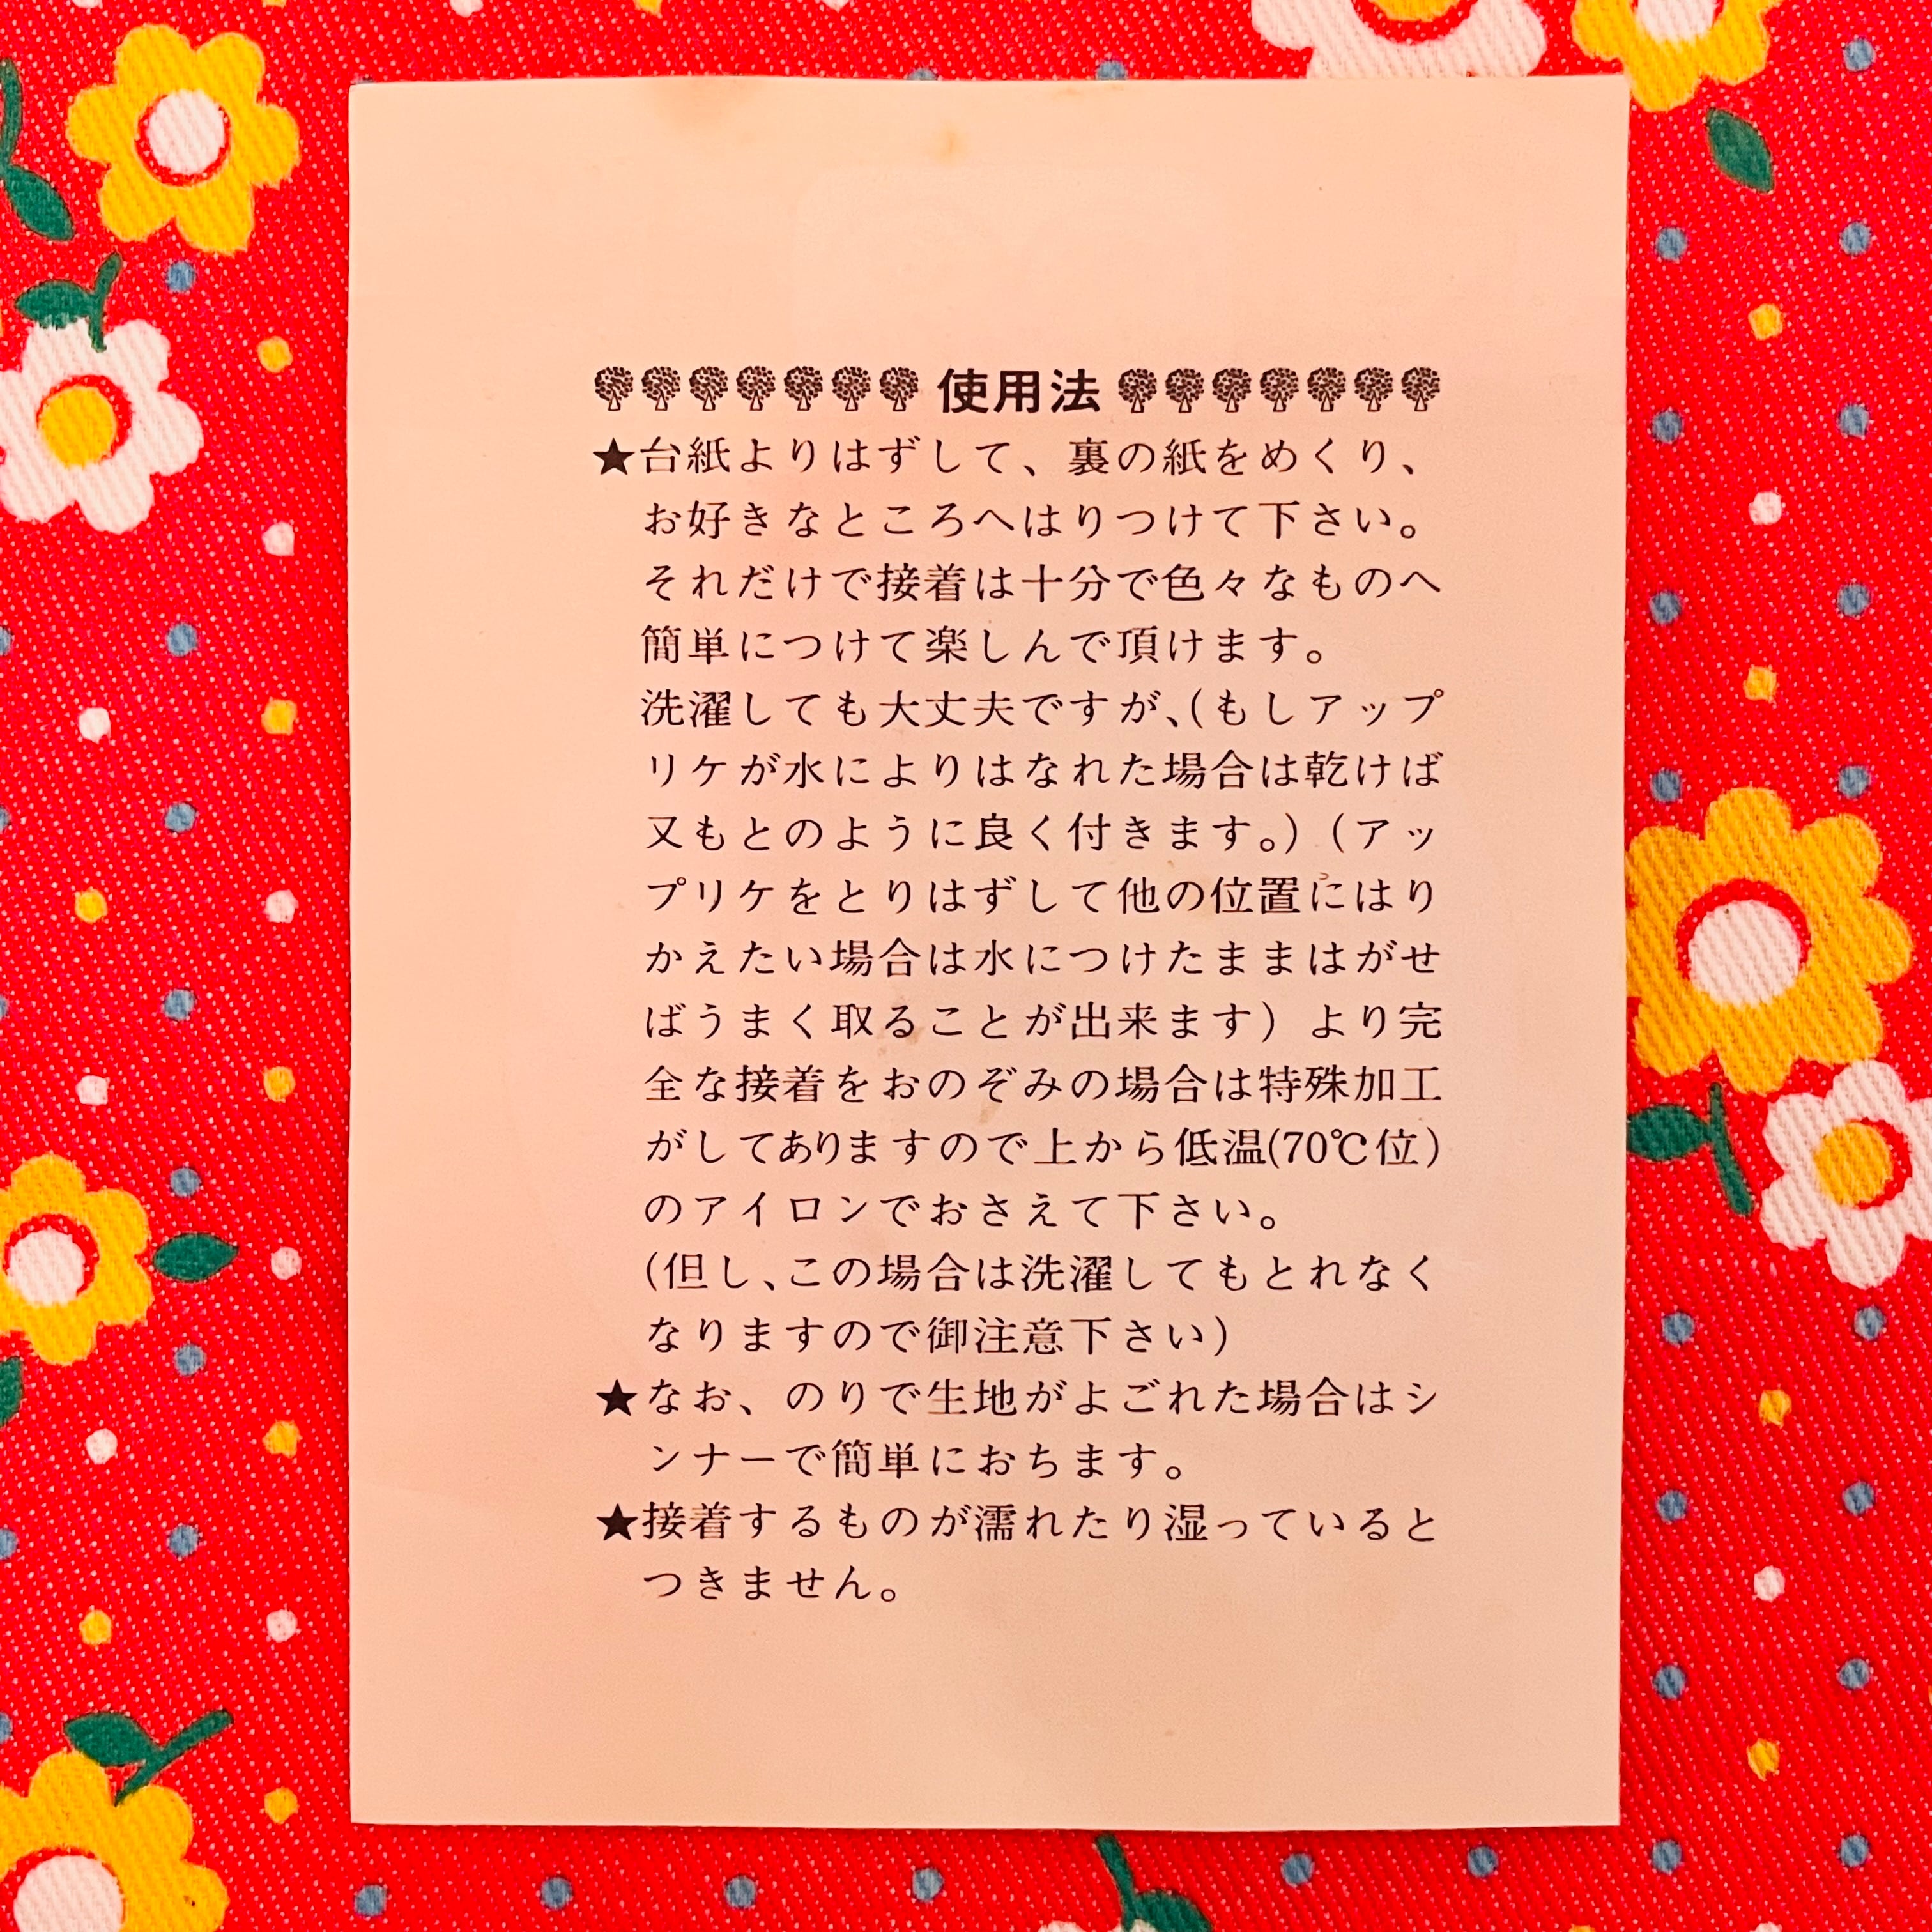 使用法
★台紙よりはずして、裏の紙をめくり、
お好きなところへはりつけて下さい。
それだけで接着は十分で色々なものへ
簡単につけて楽しんで頂けます。
洗濯しても大丈夫ですが、(もしアップ
リケが水によりはなれた場合は乾けば
又もとのように良く付きます。)(アッ
プリケをとりはずして他の位置にはり
かえたい場合は水につけたままはがせ
ばうまく取ることが出来ます)より完
全な接着をおのぞみの場合は特殊加工
がしてありますので上から低温(70℃位)
のアイロンでおさえて下さい。
(但し、この場合は洗濯してもとれなく
なりますので御注意下さい)
★なお、のりで生地がよごれた場合はシ
ンナーで簡単におちます。
★接着するものが濡れたり湿っていると
つきません。